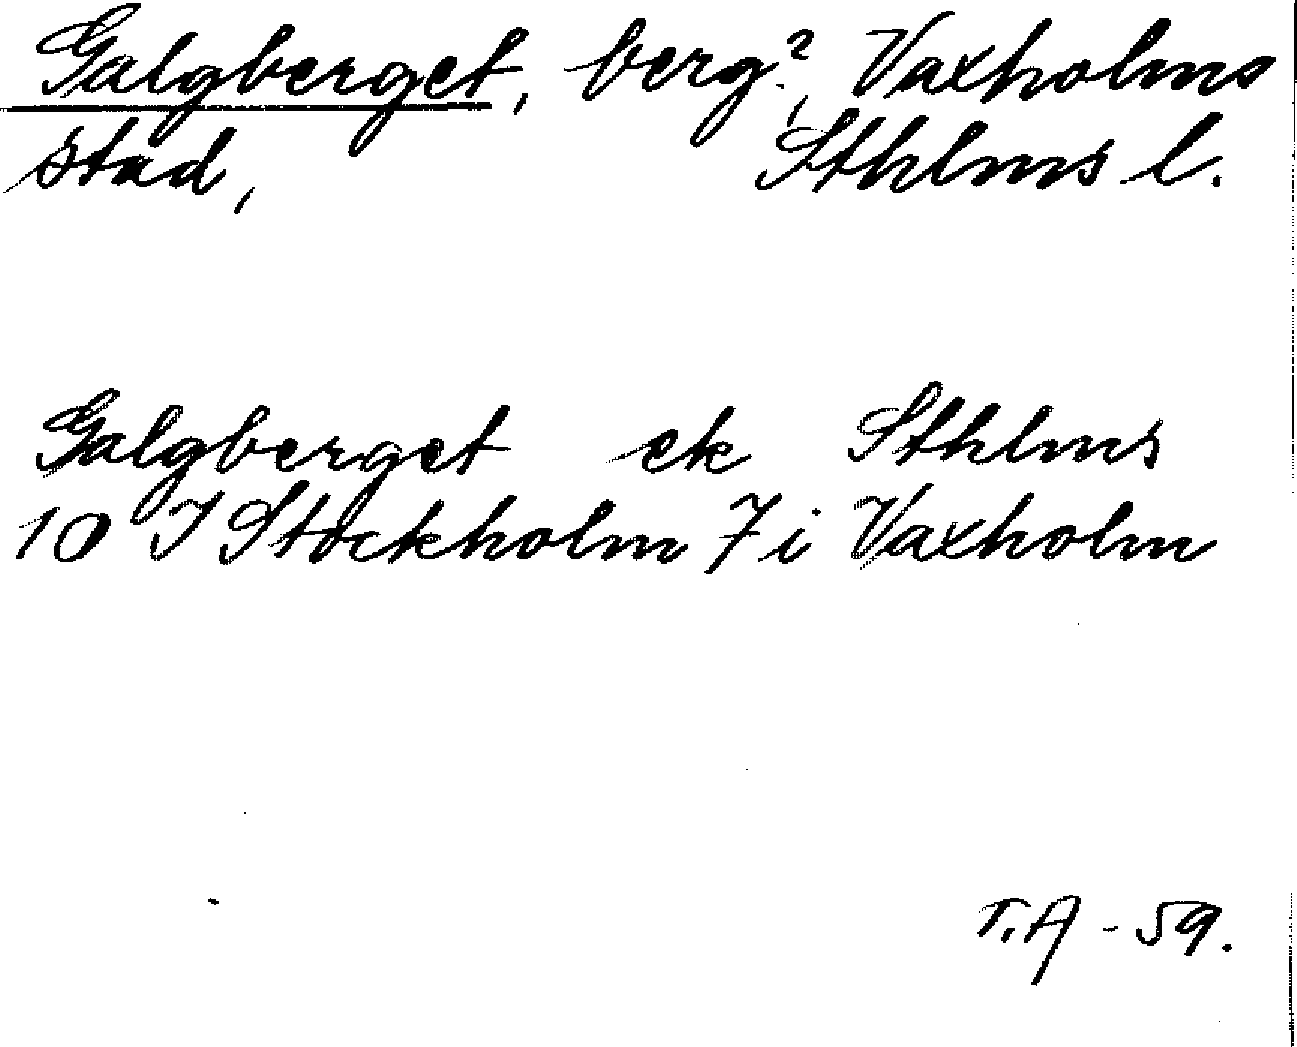 Galgberget, berg?, Vaxholms
stad, Sthlms l.
Galgberget ek Sthlms
10 I Stockholm 7 i Vaxholm
T.A - 59.